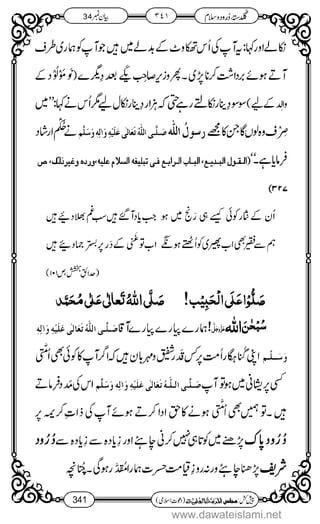 بیان نمبر 34 ٣٤١ گلدستۂ دُرود و سلام
نکالے اور کہا: یہ آپ کی اُس کی بدلے میں ہیں جو آپ کو ہماری طرف
آتے ہوئے برداشت کرنا پڑی۔ پھر وزیر صاحِب
والد کے لیے) سو سو دینار نکالتے رہے حتّٰی کہ ہزار دینار نکال لیے مگر اُس نے کہا: ’’میں
صِرف وہ ہی لوں گا جن کا مجھے رسولُ اللّٰه صَلَّی اللّٰهُ تَعَالٰی عَلَیْهِ وَاٰلِهٖ وَسَلَّم نے حُکم ارشاد
فرمایا ہے۔‘‘ (القول البدیع، الباب الرابع فی تبلیغه السلام علیه، ورده وغیر ذلك، ص
٣٢٧)
اُن کے نثار کوئی کیسے ہی رَنج میں ہو جب یاد آگئے ہیں سب غم بھلا دیئے ہیں
ہم سے فقیر بھی اب پھیری کو اُٹھتے ہوں گے اب تو غنی کے دَر پر بستر جما دیئے ہیں
(حدائقِ بخشش، ص١٠١)
صَلُّوْا عَلَی الْحَبِیْب! صَلَّی اللّٰهُ تَعَالٰی عَلٰی مُحَمَّد
سُبْحٰنَ اللّٰه عَزَّوَجَلَّ! ہمارے پیارے پیارے آقا صَلَّی اللّٰهُ تَعَالٰی عَلَیْهِ وَاٰلِهٖ
وَسَلَّم اپنی گناہگار اُمّت پر کس قَدر شفیق و مہربان ہیں کہ اگر آپ کا کوئی بھی اُمَّتی
کسی پریشانی میں ہو تو آپ صَلَّی اللّٰهُ تَعَالٰی عَلَیْهِ وَاٰلِهٖ وَسَلَّم اس کی مدد فرماتے
ہیں۔ تو ہمیں بھی اُمَّتی ہونے کا حق ادا کرتے ہوئے آپ کی ذاتِ کریمہ پر
دُرُودِ پاک پڑھنے میں کوتاہی نہیں کرنی چاہئے اور زیادہ سے زیادہ دُرُود
شریف پڑھنا چاہئے ورنہ روزِ قیامت حسرت ہمارا مُقدَّر ہوگی۔ چُنانچہ
341
www.dawateislami.net